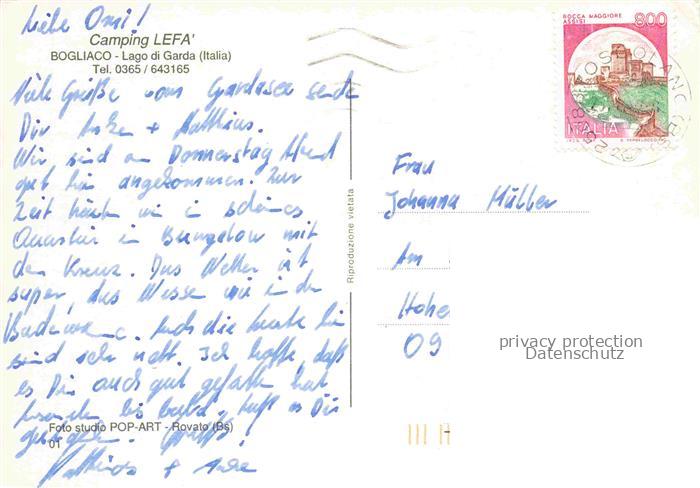 Liebe Omi!
Camping LEFA'
BOGLIACO - Lago di Garda (Italia)
Tel. 0365 / 643165
Viele Grüße vom Gardasee sende
Dir Anke + Matthias.
Wir sind am Donnerstag Abend
gut hier angekommen. Zur
Zeit wir in
Quartier in Bungalow mit
Das Wetter ist
super, das Wasser wie in der
Badewanne. Auch die Leute hier
sind sehr nett. Ich hoffe, daß
es Dir auch gut gefallen hat
bis bald,
Foto studio POP-ART - Rovato (Bs)
01
Matthias + Anke
Riproduzione vietata
ROCCA MAGGIORE
ASSISI
800
ITALIA
Frau
Johanna Müller
Am
Hohe
09
privacy protection
Datenschutz